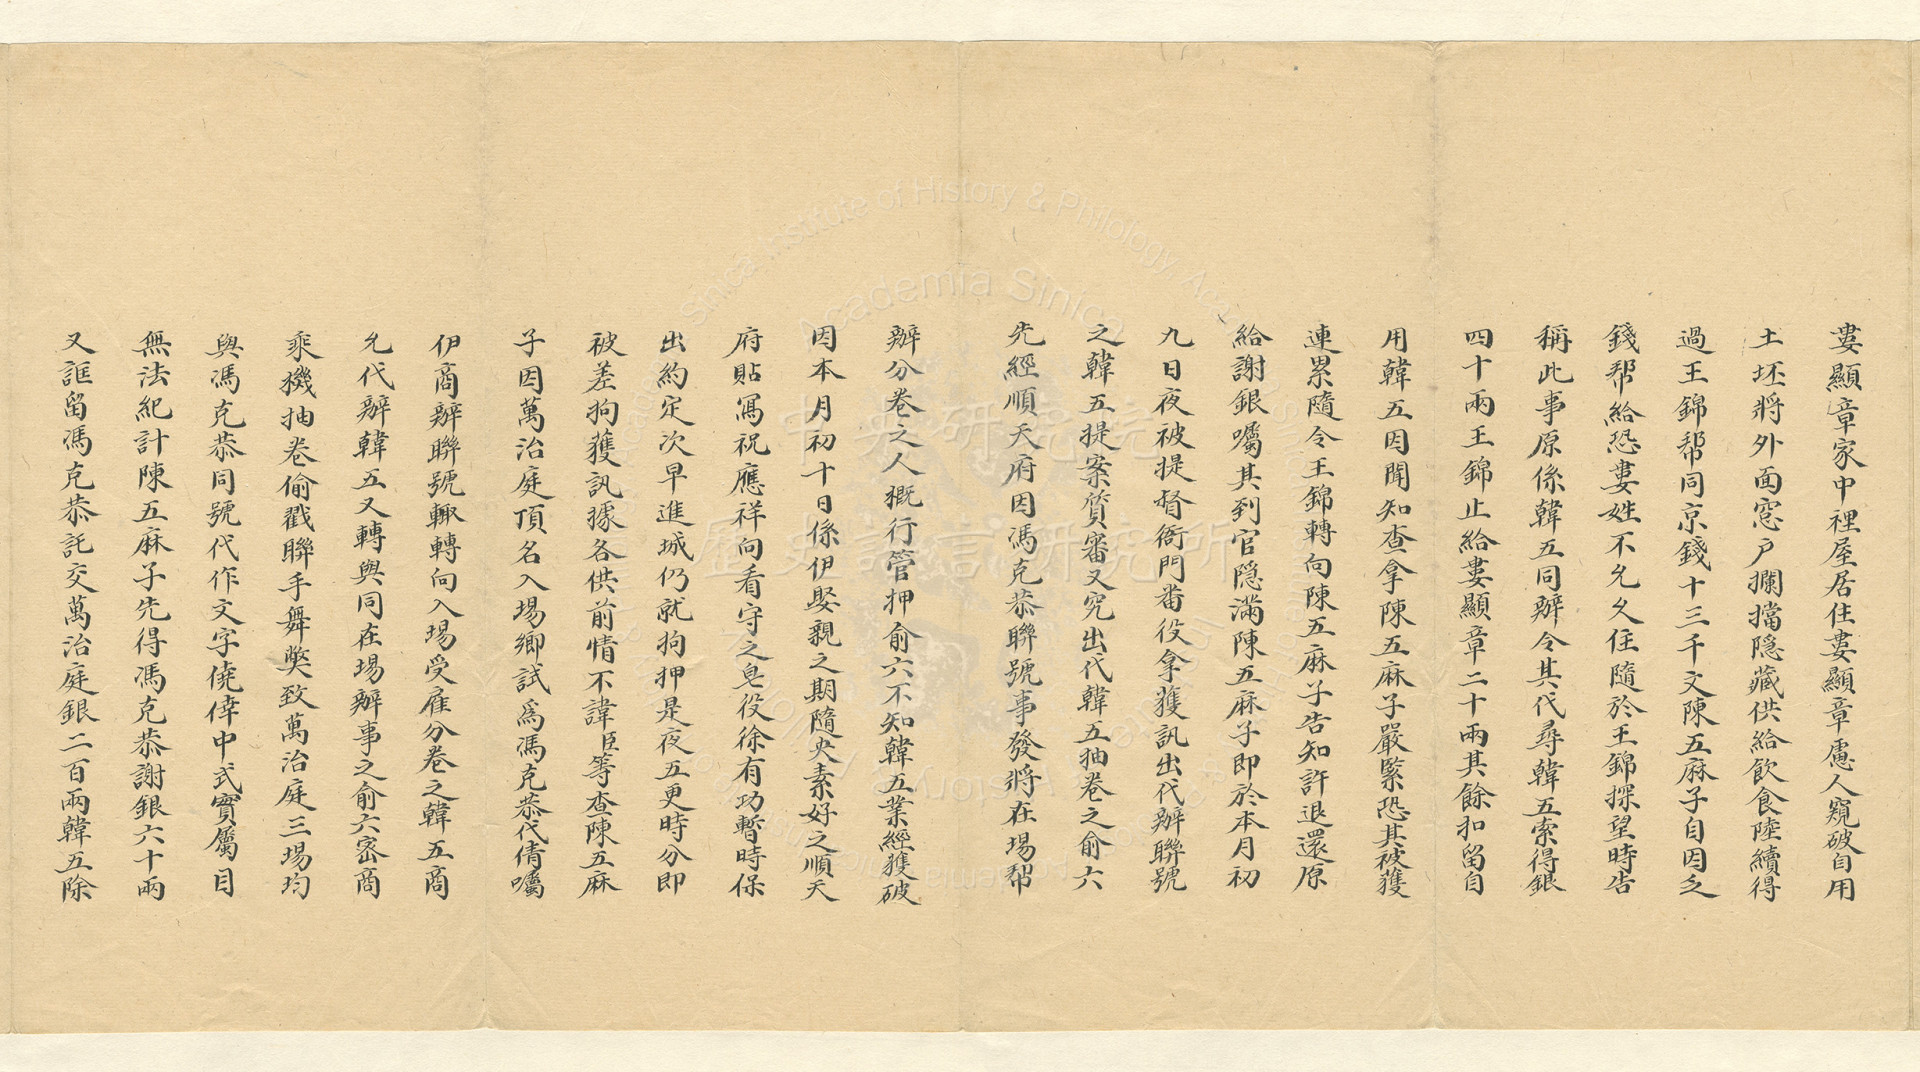 婁顯章家中裡屋居住婁顯章慮人窺破自用
土坯將外面窓户攔擋隐藏供給飲食陸續得
過王錦帮同京錢十三千文陳五麻子自因乏
錢帮給恐婁姓不允久住隨於王錦探望時告
稱此事原係韓五同辦令其代尋韓五索得銀
四十兩王錦止給婁顯章二十兩其餘扣留自
用韓五因聞知查拿陳五麻子嚴緊恐其被獲
連累隨令王錦轉向陳五麻子告知許退還原
給謝銀囑其到官隐滿陳五麻子即於本月初
九日夜被提督衙門番役拿獲訊出代辦聯號
之韓五提案質審又究出代韓五抽卷之俞六
先經順天府因馮克恭聯號事發將在場幫
辦分卷之人概行管押俞六不知韓五業經獲破
因本月初十日係伊娶親之期隨央素好之順天
府貼寫祝應祥向看守之皂役徐有功暫時保
出約定次早進城仍就拘押是夜五更時分即
被差拘獲訊據各供前情不諱臣等查陳五麻
子因萬治庭頂名入場鄉試爲馮克恭代倩囑
伊商辦聯號輙轉向入場受雇分卷之韓五商
允代辦韓五又轉與同在場辦事之俞六密商
乘機抽卷偷戳聯手舞獘致萬治庭三場均
與馮克恭同號代作文字僥倖中式實屬目
無法紀計陳五麻子先得馮克恭謝銀六十兩
又誆留馮克恭託交萬治庭銀二百兩韓五除
中央研究院
歷史語言研究所
Academia Sinica